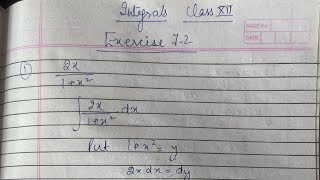 Integrals Class XII
Exercise 7.2
① 2x / 1+x²
∫ 2x / 1+x² . dx
Put 1+x² = y
2x dx = dy